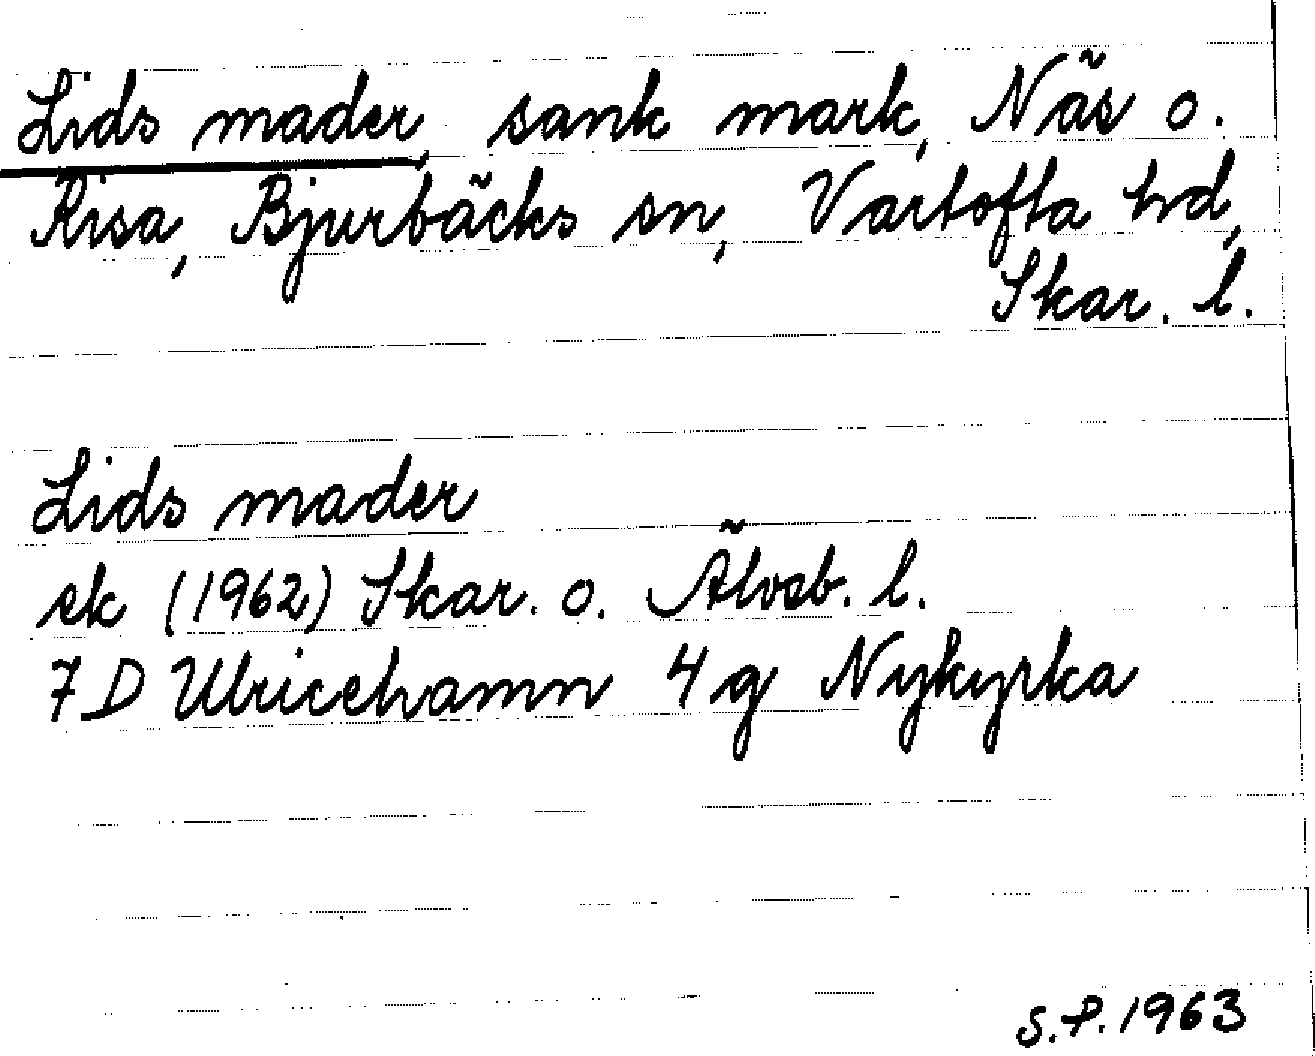 Lids mader, sank mark, Näs o.
Risa, Bjurbäcks sn, Vartofta hd,
Skar. l.
Lids mader
ek (1962) Skar. o. Älvsb. l.
7D Ulricehamn 4g Nykyrka
S.P. 1963